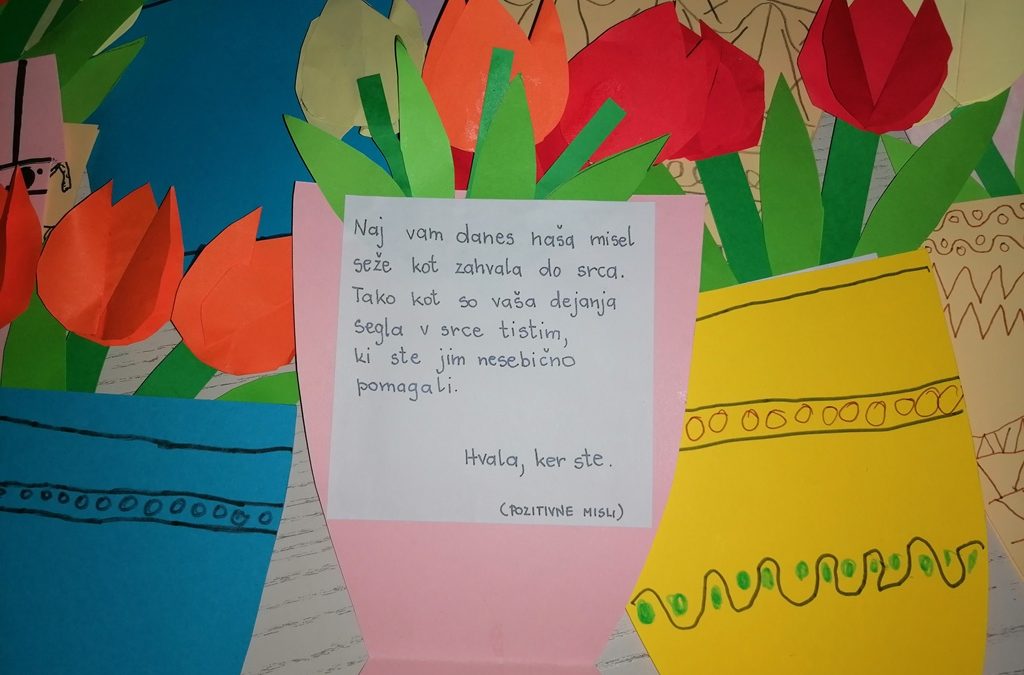 Naj vam danes naša misel
seže kot zahvala do srca.
Tako kot so vaša dejanja
segla v srce tistim,
ki ste jim nesebično
pomagali.
Hvala, ker ste.
(POZITIVNE MISLI)